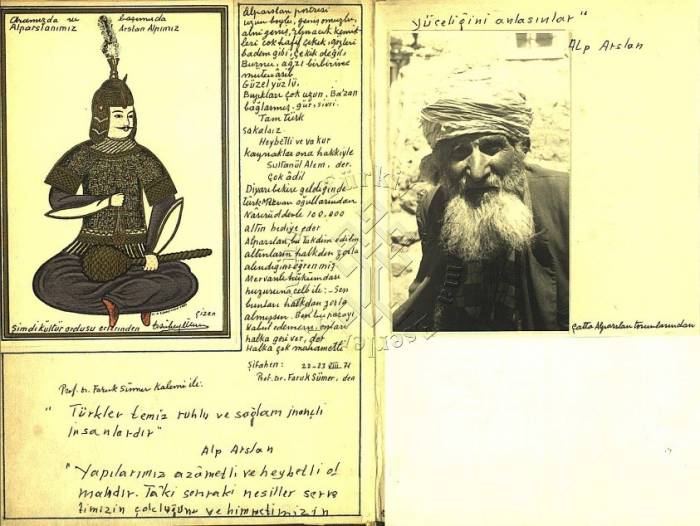 Aramızda ve başımızda
Alparslanımız Arslan Alpımız
Çizen
Şimdi kültür ordusu erlerinden
Alparslan portresi
uzun boylu, geniş omuzlu,
alnı geniş, elmacık kemik-
leri çok hafif çekik, gözleri
badem gibi, çekik değil,
Burnu, ağzı birbirine
mütenâsib
Güzel yüzlü,
Bıyıkları çok uzun, Ba'zan
bağlarmış. gür, sivri.
Tam türk
sakalsız
Heybetli ve vakur
Kaynaklar ona hakkiyle
Sultanül Alem, der.
Çok âdil
Diyarıbekire geldiğinde
türk Mervan oğullarından
Nasırüddevle 100.000
altın hediye eder
Alparslan, bu takdim edilen
altınların halkdan zorla
alındığını öğrenmiş
Mervanlı hükümdarı
huzuruna celb ile: - Sen
bunları halkdan zorla
almışsın. Ben bu parayı
Kabul edemem. onları
halka geri ver, der
Halka çok mahametli
Şifahen: 22-23 VIII. 71
Prof. Dr. Faruk Sümer, den
Prof. Dr. Faruk Sümer Kalemi ile:
"Türkler temiz ruhlu ve sağlam inançlı
insanlardır"
Alp Arslan
"Yapılarımız azâmetli ve heybetli ol
malıdır. Tâki sonraki nesiller serve
timizin çokluğunu ve himmetimizin
yüceliğini anlasınlar"
Alp Arslan
Çatta Alparslan torunlarından